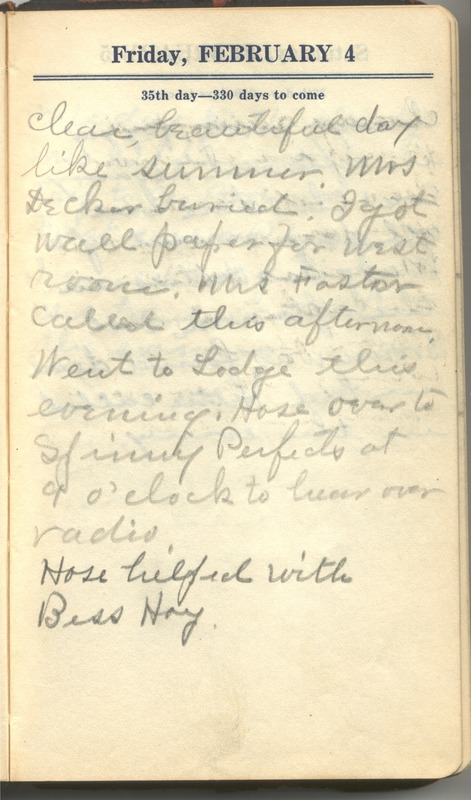 Friday, FEBRUARY 4
35th day—330 days to come
Clear, beautiful day
like summer. Mrs
Decker buried. I got
wall paper for west
room. Mrs Foster
called this afternoon.
Went to Lodge this
evening. Hose over to
Spinny Perfects at
9 o'clock to hear over
radio
Hose helped with
Bess Hoy.